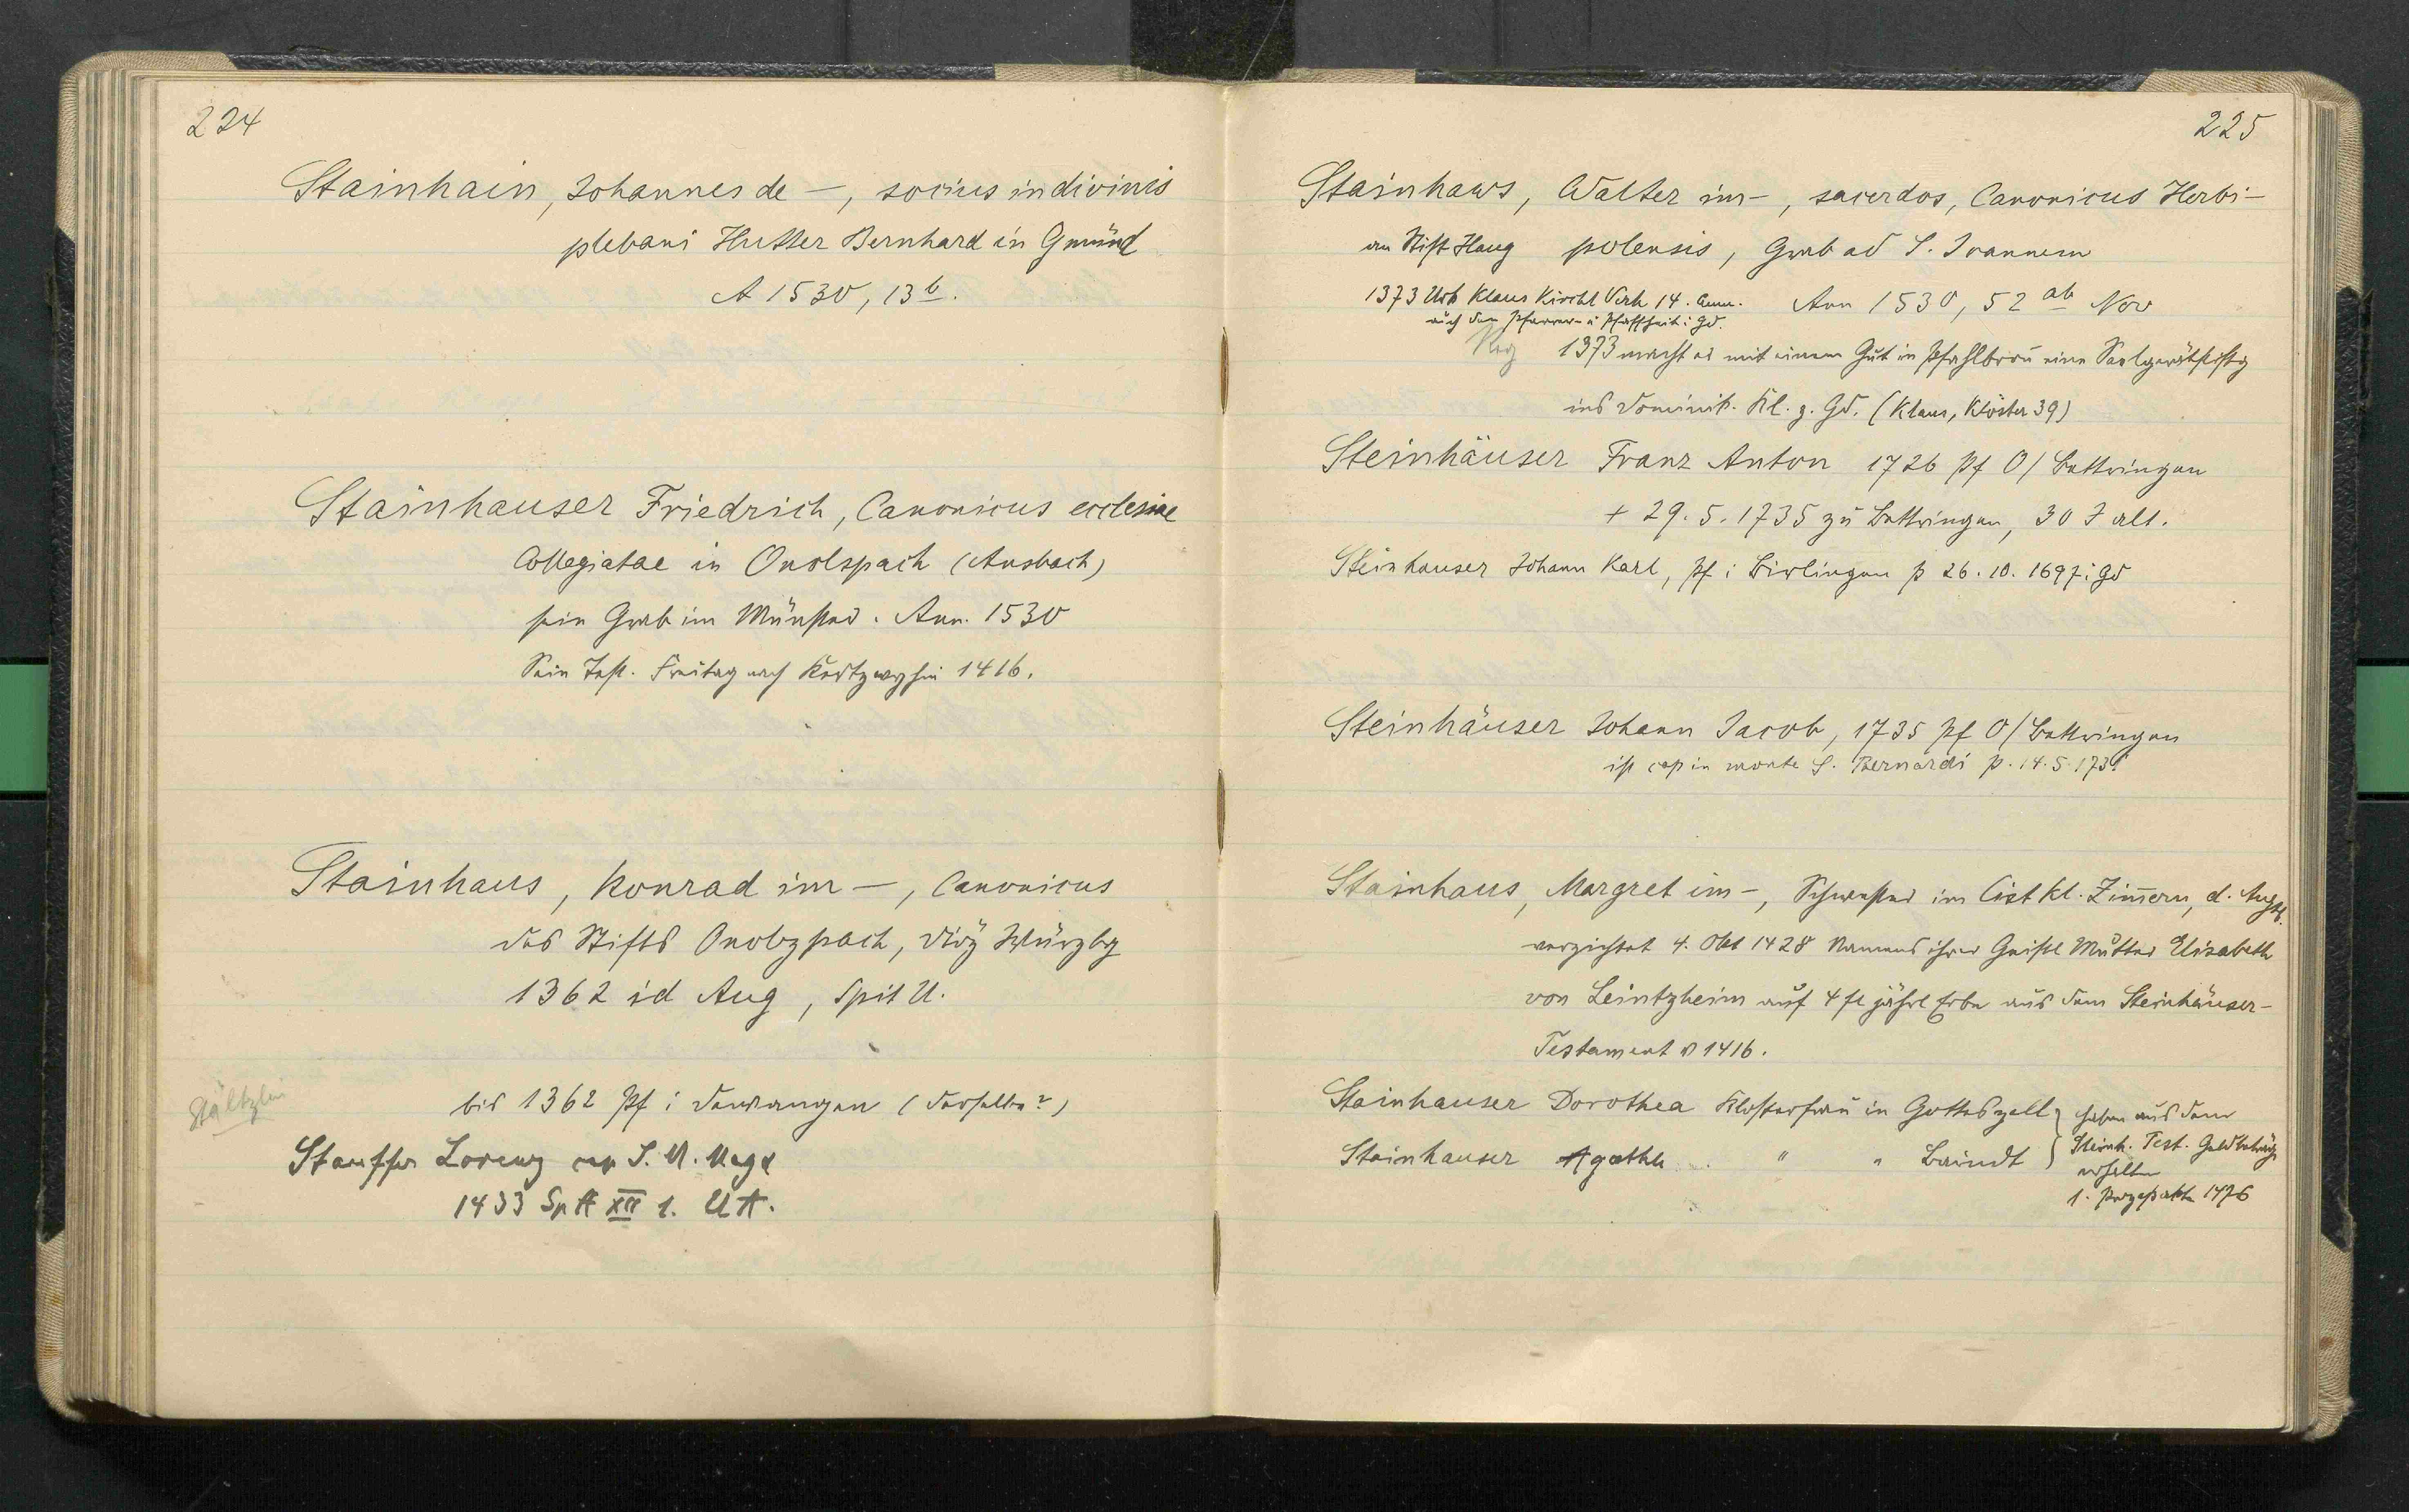 224
Stainhain, Johannes de —, socius in divinis
plebani Hutter Bernhard in Gmünd
A 1530, 13 b.
Stainhauser Friedrich, Canonicus ecclesiae
Collegiatae in Onolspach (Ansbach)
sein Grab im Münster. Ann. 1530
Sein Test. Freitag nach 1416.
Stainhaus, Konrad im —, Canonicus
des Stifts Onolzpach, Diöz Würzbg
1362 id Aug, Spit U.
bis 1362 Pf i Dewangen (derselbe?)
Stältzlin
Stauffer Lorenz cap S. M. Magd
1433 Sp A XII 1. U A.
225
Stainhaws, Walter im —, sacerdos, Canonicus Herbi-
an Stift Haug polensis, Grab ad S. Joannem
1373 Urk Klaus Kirchl Verh 14. Anm. Ann 1530, 52 ab Nov
auch den Pfarrer- u Pfaffheit i Gd.
Reg 1373 macht er mit einem Gut in Pfahlbron eine Seelgerätstiftg
ins Dominik. Kl. z. Gd. (Klaus, Klöster 39)
Steinhäuser Franz Anton 1726 Pf O/Bettringen
+ 29. 5. 1735 zu Bettringen, 30 J alt.
Steinhauser Johann Karl, Pf i Birlingen p 26. 10. 1697 i Gd
Steinhäuser Johann Jacob, 1735 Pf O/Bettringen
ist cap in monte S. Bernardi p. 14. 5. 1739
Stainhaus, Margret im —, Schwester im Cist Kl. Zimmern, d. Augsb.
verzichtet 4. Okt 1428 Namens ihrer Geistl Mutter Elisabeth
von Leintzheim auf 4 fl jährl Erbe aus dem Steinhäuser-
Testament v 1416.
Stainhauser Dorothea Klosterfrau in Gotteszell } haben aus dem
Stainhauser Agathe " " Baindt } Steinh. Test. Geldbeträge
erhalten
1. Prozeßakten 1476